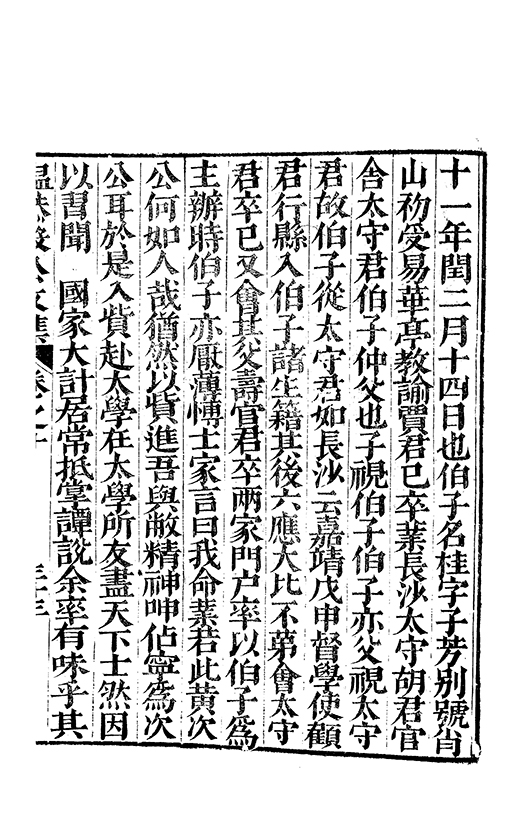 十一年閏二月十四日也伯子名桂字子芳別號肖
山初受易華亭教諭賈君已卒業長沙太守胡君官
舍太守君伯子仲父也子視伯子伯子亦父視太守
君故伯子從太守君如長沙云嘉靖戊申督學使顧
君行縣入伯子諸生籍其後六應大比不第會太守
君卒已又會其父壽官君卒兩家門户率以伯子爲
主辦時伯子亦厭薄愽士家言曰我命業若此黄次
公何如人哉猶然以貲進吾與敝精神呻佔寧爲次
公耳於是入貲赴太學在太學所友盡天下士然因
以習聞 國家大計居常抵掌譚說余率有味乎其
公文集 卷之十 三十三